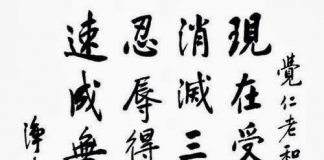 覺仁老和
現在受
消滅三
忍辱得
速成無
淨